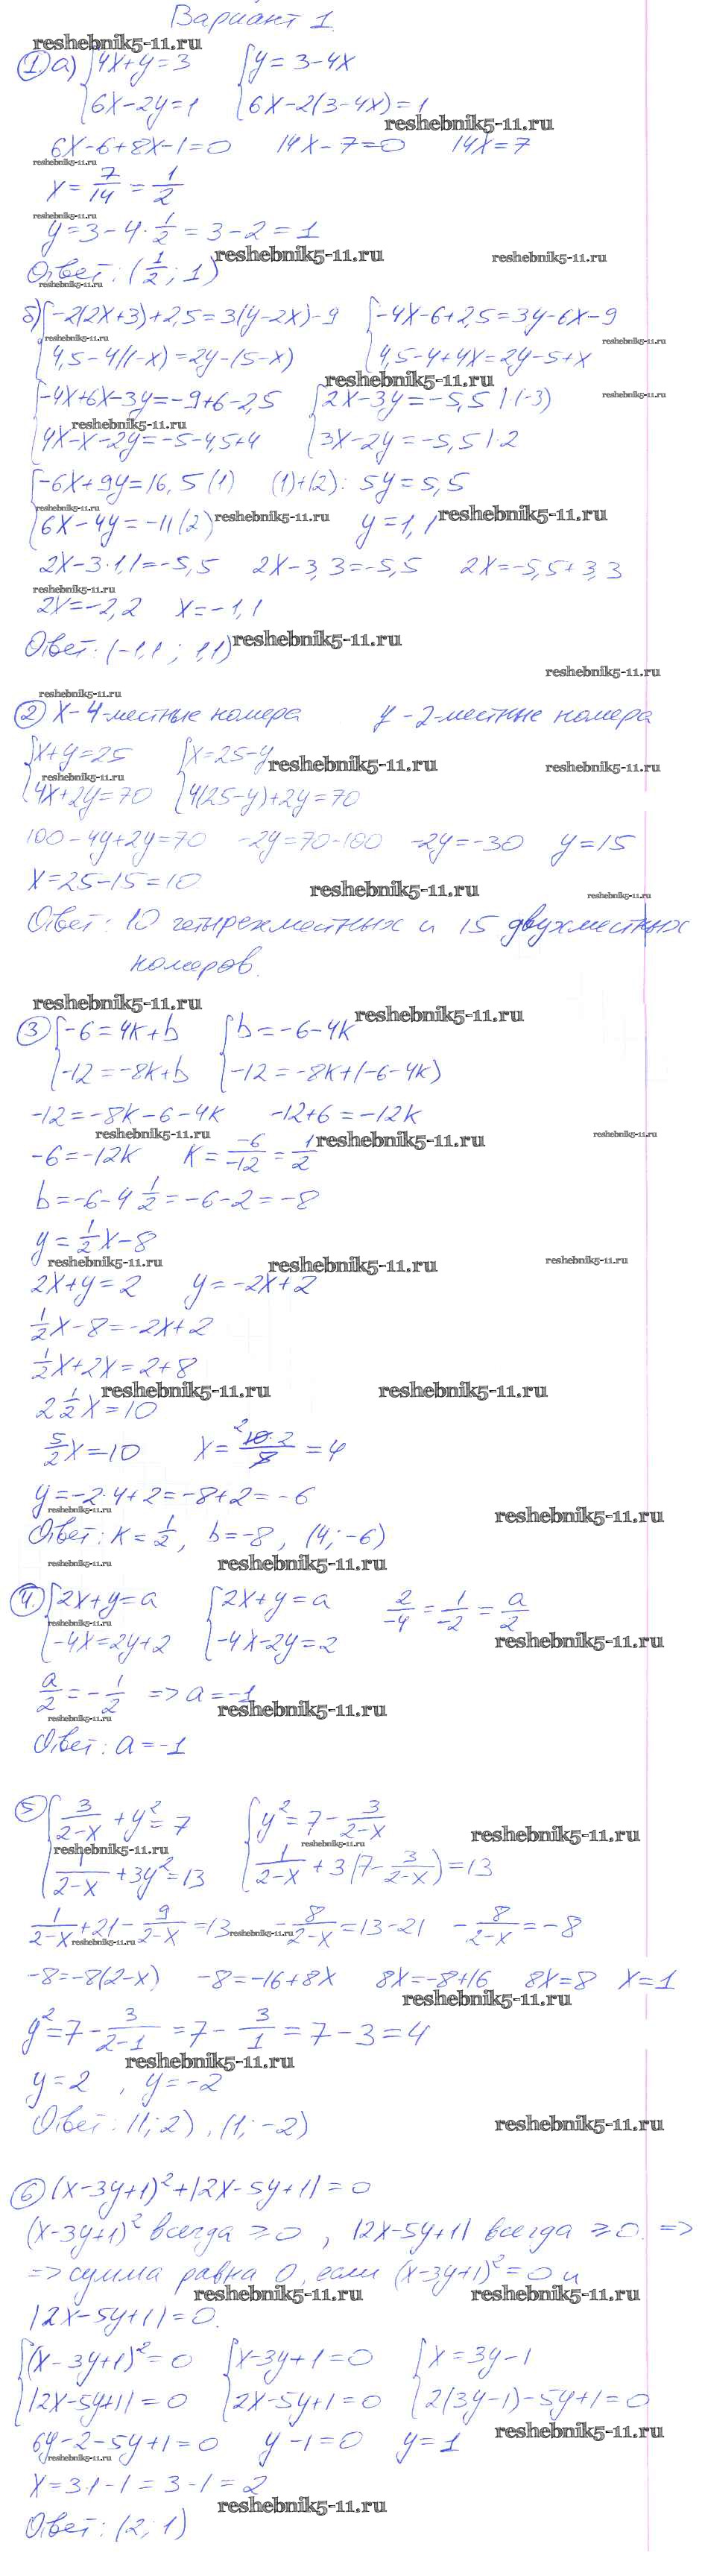 Вариант 1.
reshebnik5-11.ru
① а) {4x+y=3 {y=3-4x
{6x-2y=1 {6x-2(3-4x)=1
reshebnik5-11.ru
6x-6+8x-1=0 14x-7=0 14x=7
reshebnik5-11.ru
x=7/14=1/2
reshebnik5-11.ru
y=3-4·1/2=3-2=1
reshebnik5-11.ru reshebnik5-11.ru
Ответ: (1/2; 1)
reshebnik5-11.ru
б) {-2(2x+3)+2,5=3(y-2x)-9 {-4x-6+2,5=3y-6x-9
reshebnik5-11.ru reshebnik5-11.ru
{4,5-4(1-x)=2y-(5-x) {4,5-4+4x=2y-5+x
reshebnik5-11.ru reshebnik5-11.ru
{-4x+6x-3y=-9+6-2,5 {2x-3y=-5,5 |·(-3)
reshebnik5-11.ru
{4x-x-2y=-5-4,5+4 {3x-2y=-5,5 |·2
{-6x+9y=16,5 (1) (1)+(2): 5y=5,5
reshebnik5-11.ru reshebnik5-11.ru reshebnik5-11.ru
{6x-4y=-11 (2) y=1,1
2x-3·1,1=-5,5 2x-3,3=-5,5 2x=-5,5+3,3
reshebnik5-11.ru
2x=-2,2 x=-1,1
Ответ: (-1,1; 1,1)
reshebnik5-11.ru
reshebnik5-11.ru
reshebnik5-11.ru
② x-4-местные номера y-2-местные номера
{x+y=25 {x=25-y
reshebnik5-11.ru reshebnik5-11.ru reshebnik5-11.ru
{4x+2y=70 {4(25-y)+2y=70
100-4y+2y=70 -2y=70-100 -2y=-30 y=15
x=25-15=10
reshebnik5-11.ru reshebnik5-11.ru
Ответ: 10 четырехместных и 15 двухместных
номеров.
reshebnik5-11.ru reshebnik5-11.ru
③ {-6=4k+b {b=-6-4k
{-12=-8k+b {-12=-8k+(-6-4k)
-12=-8k-6-4k -12+6=-12k
reshebnik5-11.ru reshebnik5-11.ru reshebnik5-11.ru
-6=-12k k=-6/-12=1/2
b=-6-4 1/2=-6-2=-8
y=1/2x-8
reshebnik5-11.ru reshebnik5-11.ru reshebnik5-11.ru
2x+y=2 y=-2x+2
1/2x-8=-2x+2
1/2x+2x=2+8
reshebnik5-11.ru reshebnik5-11.ru
2 1/2x=10
5/2x=10 x=10·2/5=4
y=-2·4+2=-8+2=-6
reshebnik5-11.ru reshebnik5-11.ru
Ответ: k=1/2, b=-8, (4; -6)
reshebnik5-11.ru reshebnik5-11.ru
④ {2x+y=a {2x+y=a 2/-4=1/-2=a/2
reshebnik5-11.ru reshebnik5-11.ru
{-4x=2y+2 {-4x-2y=2
a/2=-1/2 => a=-1
reshebnik5-11.ru reshebnik5-11.ru
Ответ: a=-1
⑤ {3/(2-x)+y²=7 {y²=7-3/(2-x)
reshebnik5-11.ru reshebnik5-11.ru reshebnik5-11.ru
{1/(2-x)+3y²=13 {1/(2-x)+3(7-3/(2-x))=13
1/(2-x)+21-9/(2-x)=13 -8/(2-x)=13-21 -8/(2-x)=-8
reshebnik5-11.ru reshebnik5-11.ru
-8=-8(2-x) -8=-16+8x 8x=-8+16 8x=8 x=1
reshebnik5-11.ru
y²=7-3/(2-1)=7-3/1=7-3=4
reshebnik5-11.ru
y=2, y=-2
Ответ: (1; 2), (1; -2)
reshebnik5-11.ru
⑥ (x-3y+1)²+|2x-5y+1|=0
(x-3y+1)² всегда ≥0, |2x-5y+1| всегда ≥0. =>
=> сумма равна 0, если (x-3y+1)²=0 и
reshebnik5-11.ru reshebnik5-11.ru
|2x-5y+1|=0.
{(x-3y+1)²=0 {x-3y+1=0 {x=3y-1
{|2x-5y+1|=0 {2x-5y+1=0 {2(3y-1)-5y+1=0
reshebnik5-11.ru
6y-2-5y+1=0 y-1=0 y=1
reshebnik5-11.ru
x=3·1-1=3-1=2
reshebnik5-11.ru
Ответ: (2; 1)